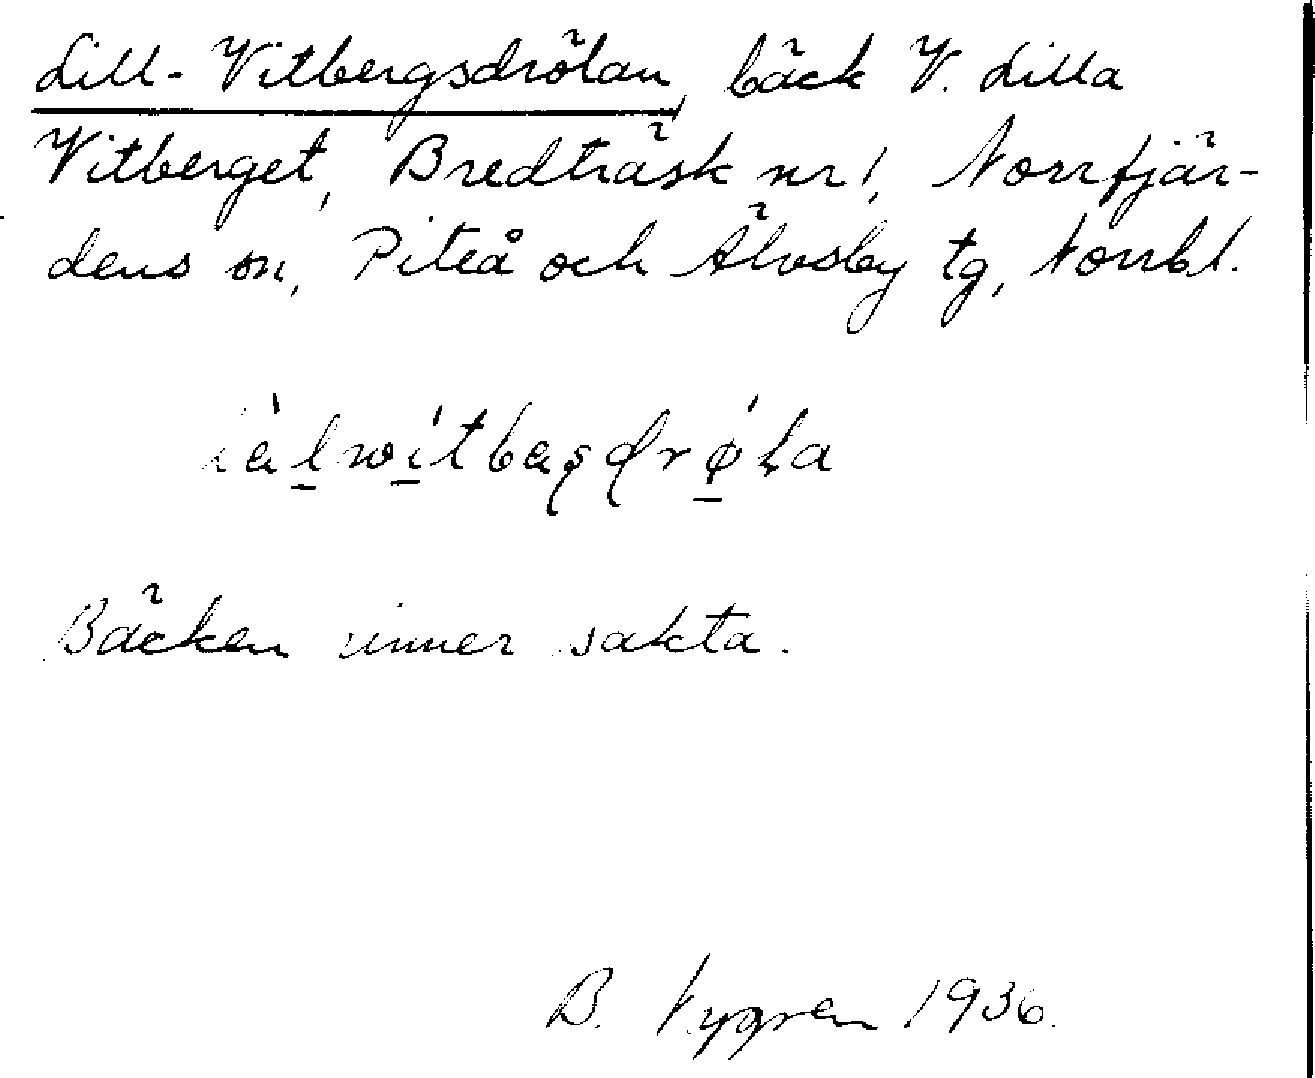 Lill-Vitbergsdrölan, bäck V. Lilla
Vitberget, Bredträsk nr 1, Norrfjär-
dens sn, Piteå och Älvsby tg, Norrbl.
Bäcken rinner sakta.
B. Nygren 1936.